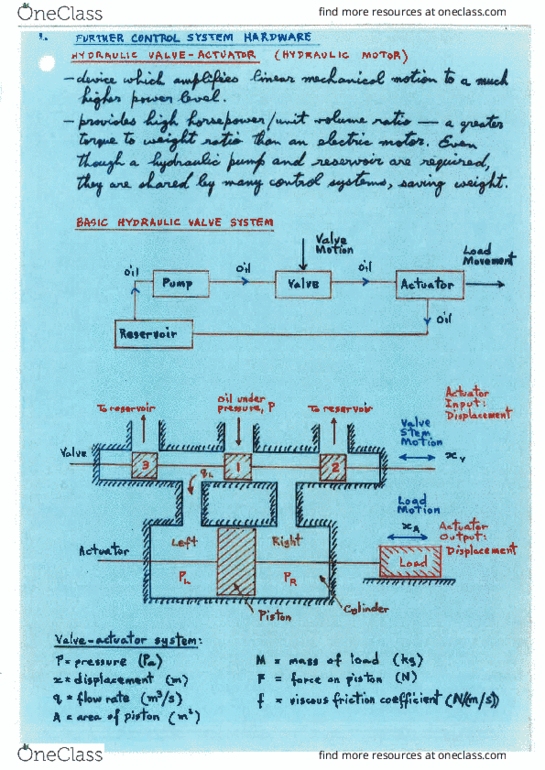 OneClass
find more resources at oneclass.com
1. FURTHER CONTROL SYSTEM HARDWARE
HYDRAULIC VALVE-ACTUATOR (HYDRAULIC MOTOR)
- device which amplifies linear mechanical motion to a much
higher power level.
- provides high horsepower/unit volume ratio — a greater
torque to weight ratio than an electric motor. Even
though a hydraulic pump and reservoir are required,
they are shared by many control systems, saving weight.
BASIC HYDRAULIC VALVE SYSTEM
Valve
Motion
Load
Movement
oil
Pump
oil
Valve
oil
Actuator
oil
Reservoir
To reservoir
oil under
pressure, P
To reservoir
Actuator
Input:
Displacement
Valve
Stem
Motion
Valve
3
1
2
xV
qL
Load
Motion
xA
Actuator
Output:
Displacement
Actuator
Left
Right
PL
PR
Load
Piston
Cylinder
Valve-actuator system:
P = pressure (Pa)
x = displacement (m)
q = flow rate (m³/s)
A = area of piston (m²)
M = mass of load (kg)
F = force on piston (N)
f = viscous friction coefficient (N/(m/s))
OneClass
find more resources at oneclass.com